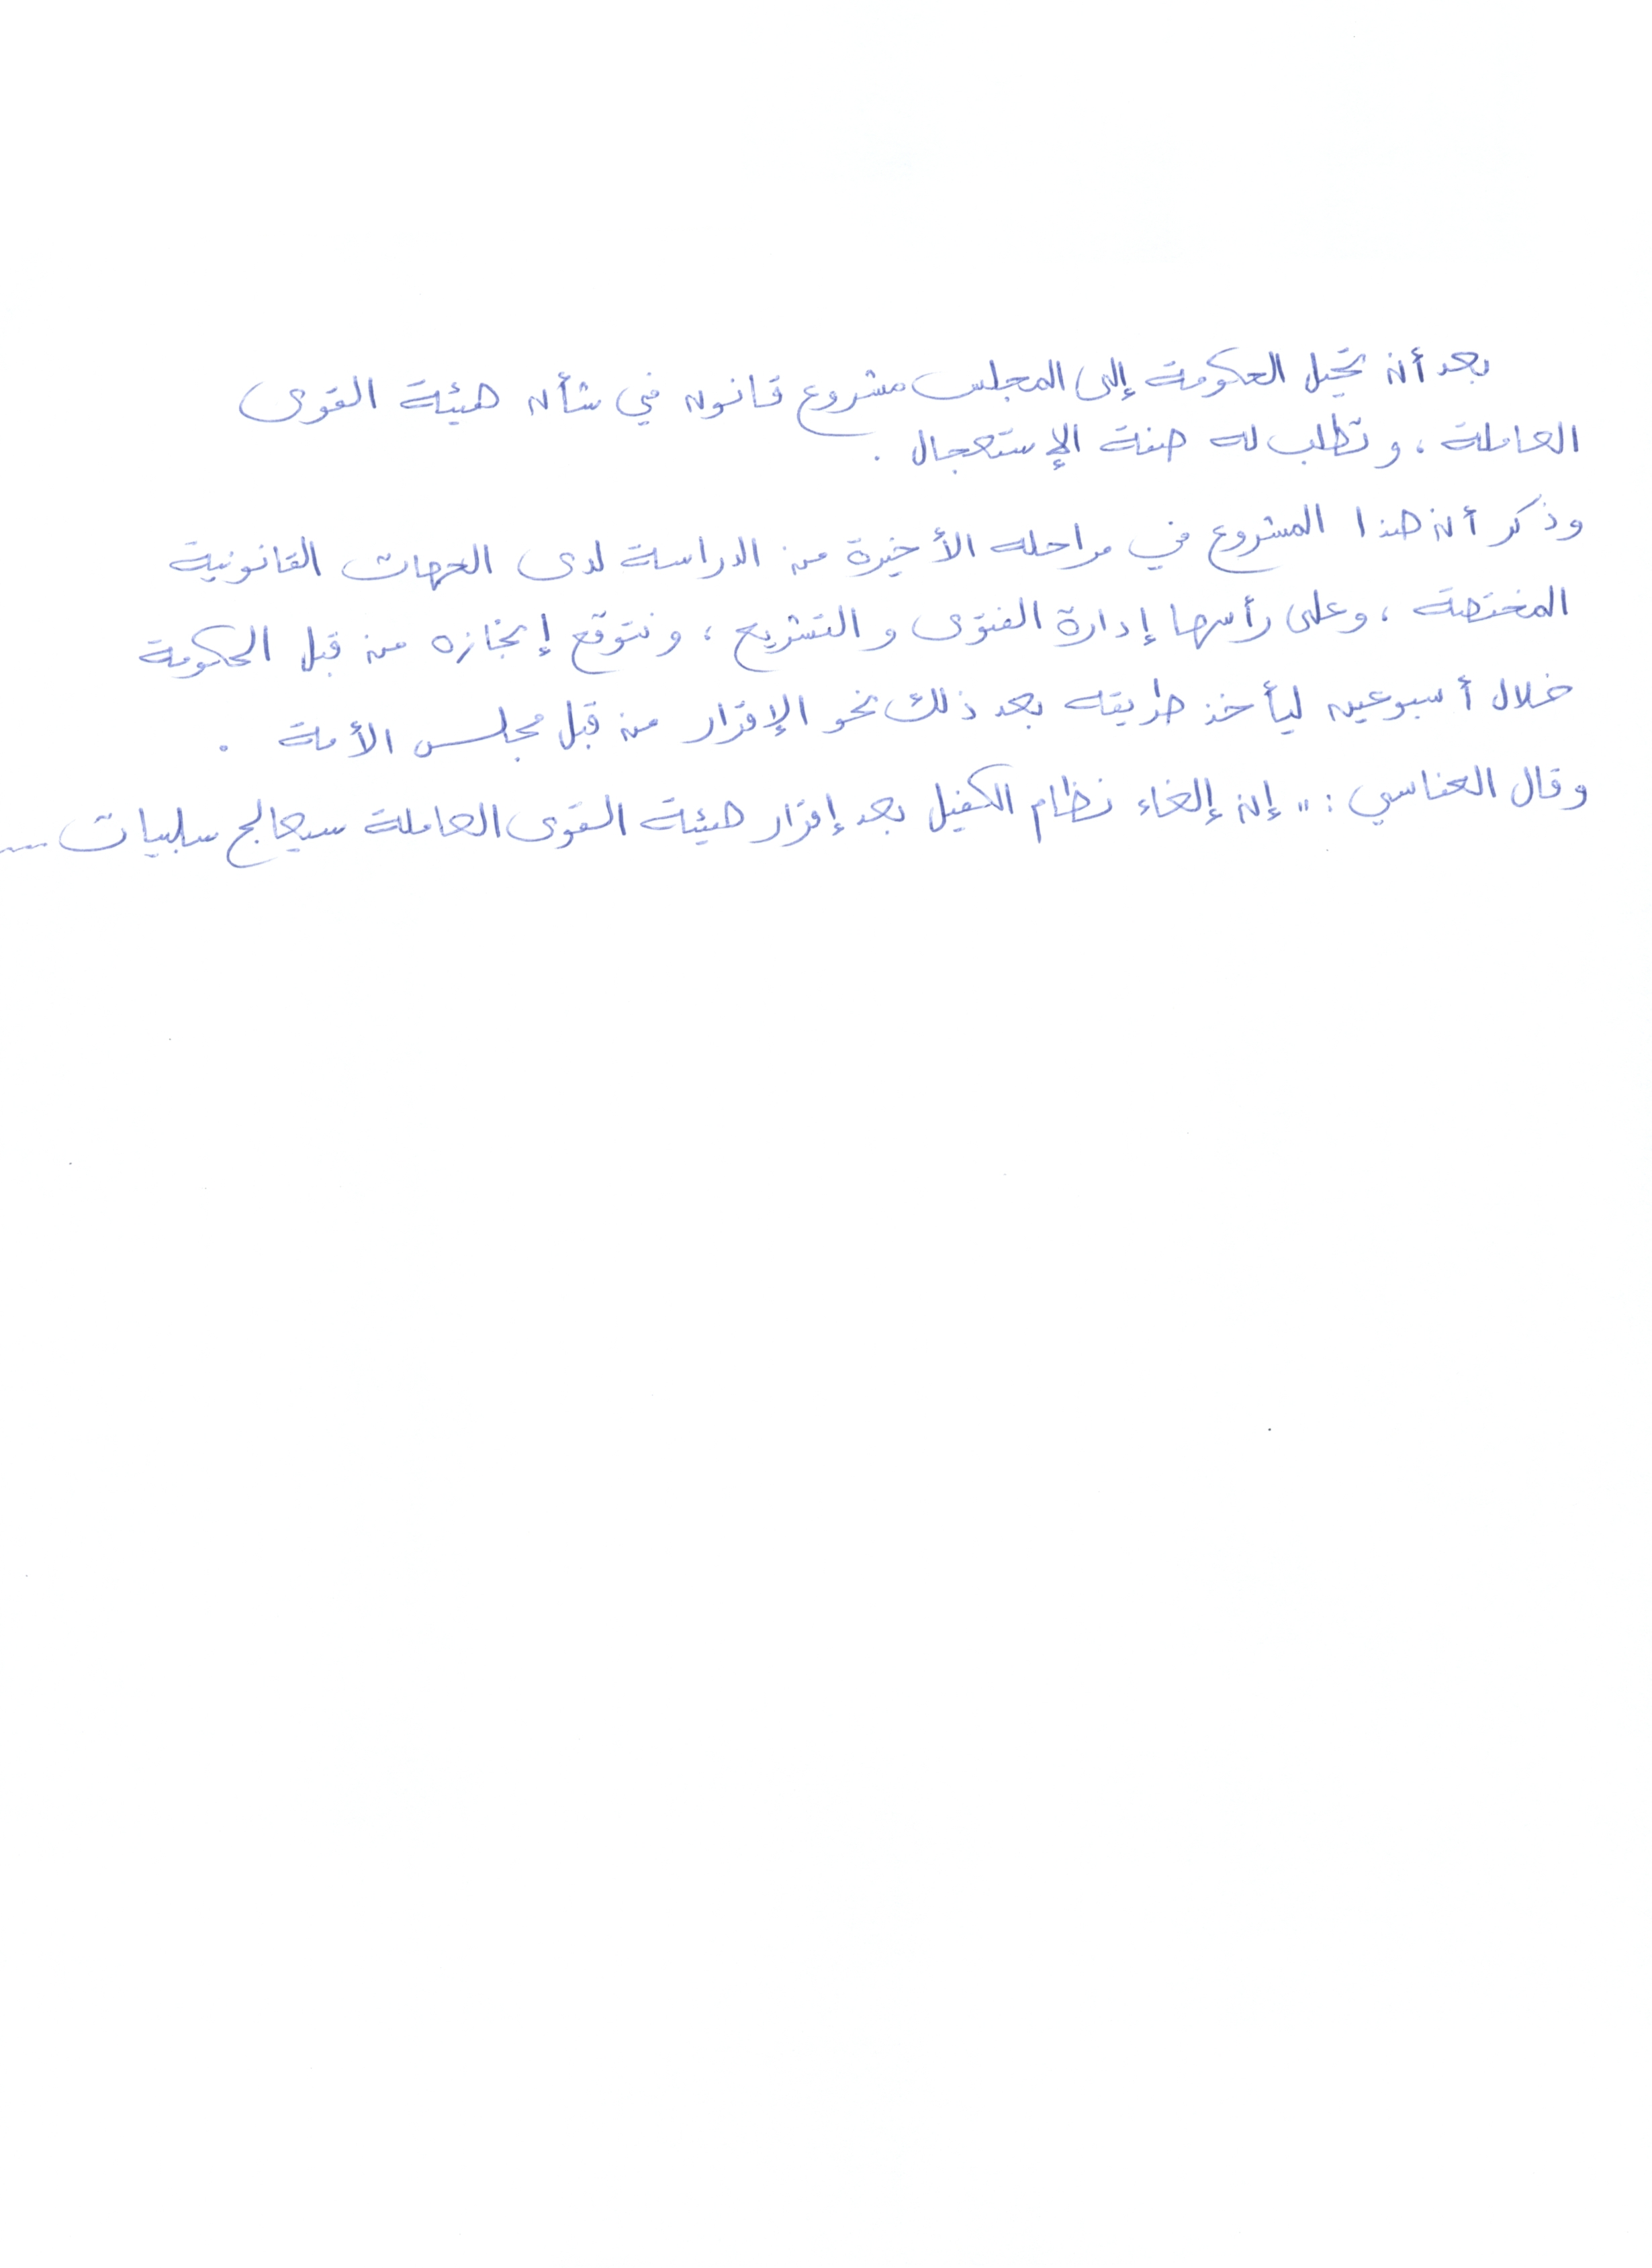 بعد أن تحيل الحكومة إلى المجلس مشروع قانون في شأن هيئة القوى
العاملة ، وتطلب له صفة الإستعجال .
وذكر أن هذا المشروع في مراحله الأخيرة من الدراسة لدى الجهات القانونية
المختصة ، وعلى رأسها إدارة الفتوى والتشريع ؛ ونتوقع إنجازه من قبل الحكومة
خلال أسبوعين ليأخذ طريقه بعد ذلك نحو الإقرار من قبل مجلس الأمة .
وقال العفاسي : " إن إلغاء نظام الكفيل بعد إقرار هيئة القوى العاملة سيعالج سلبيات ....